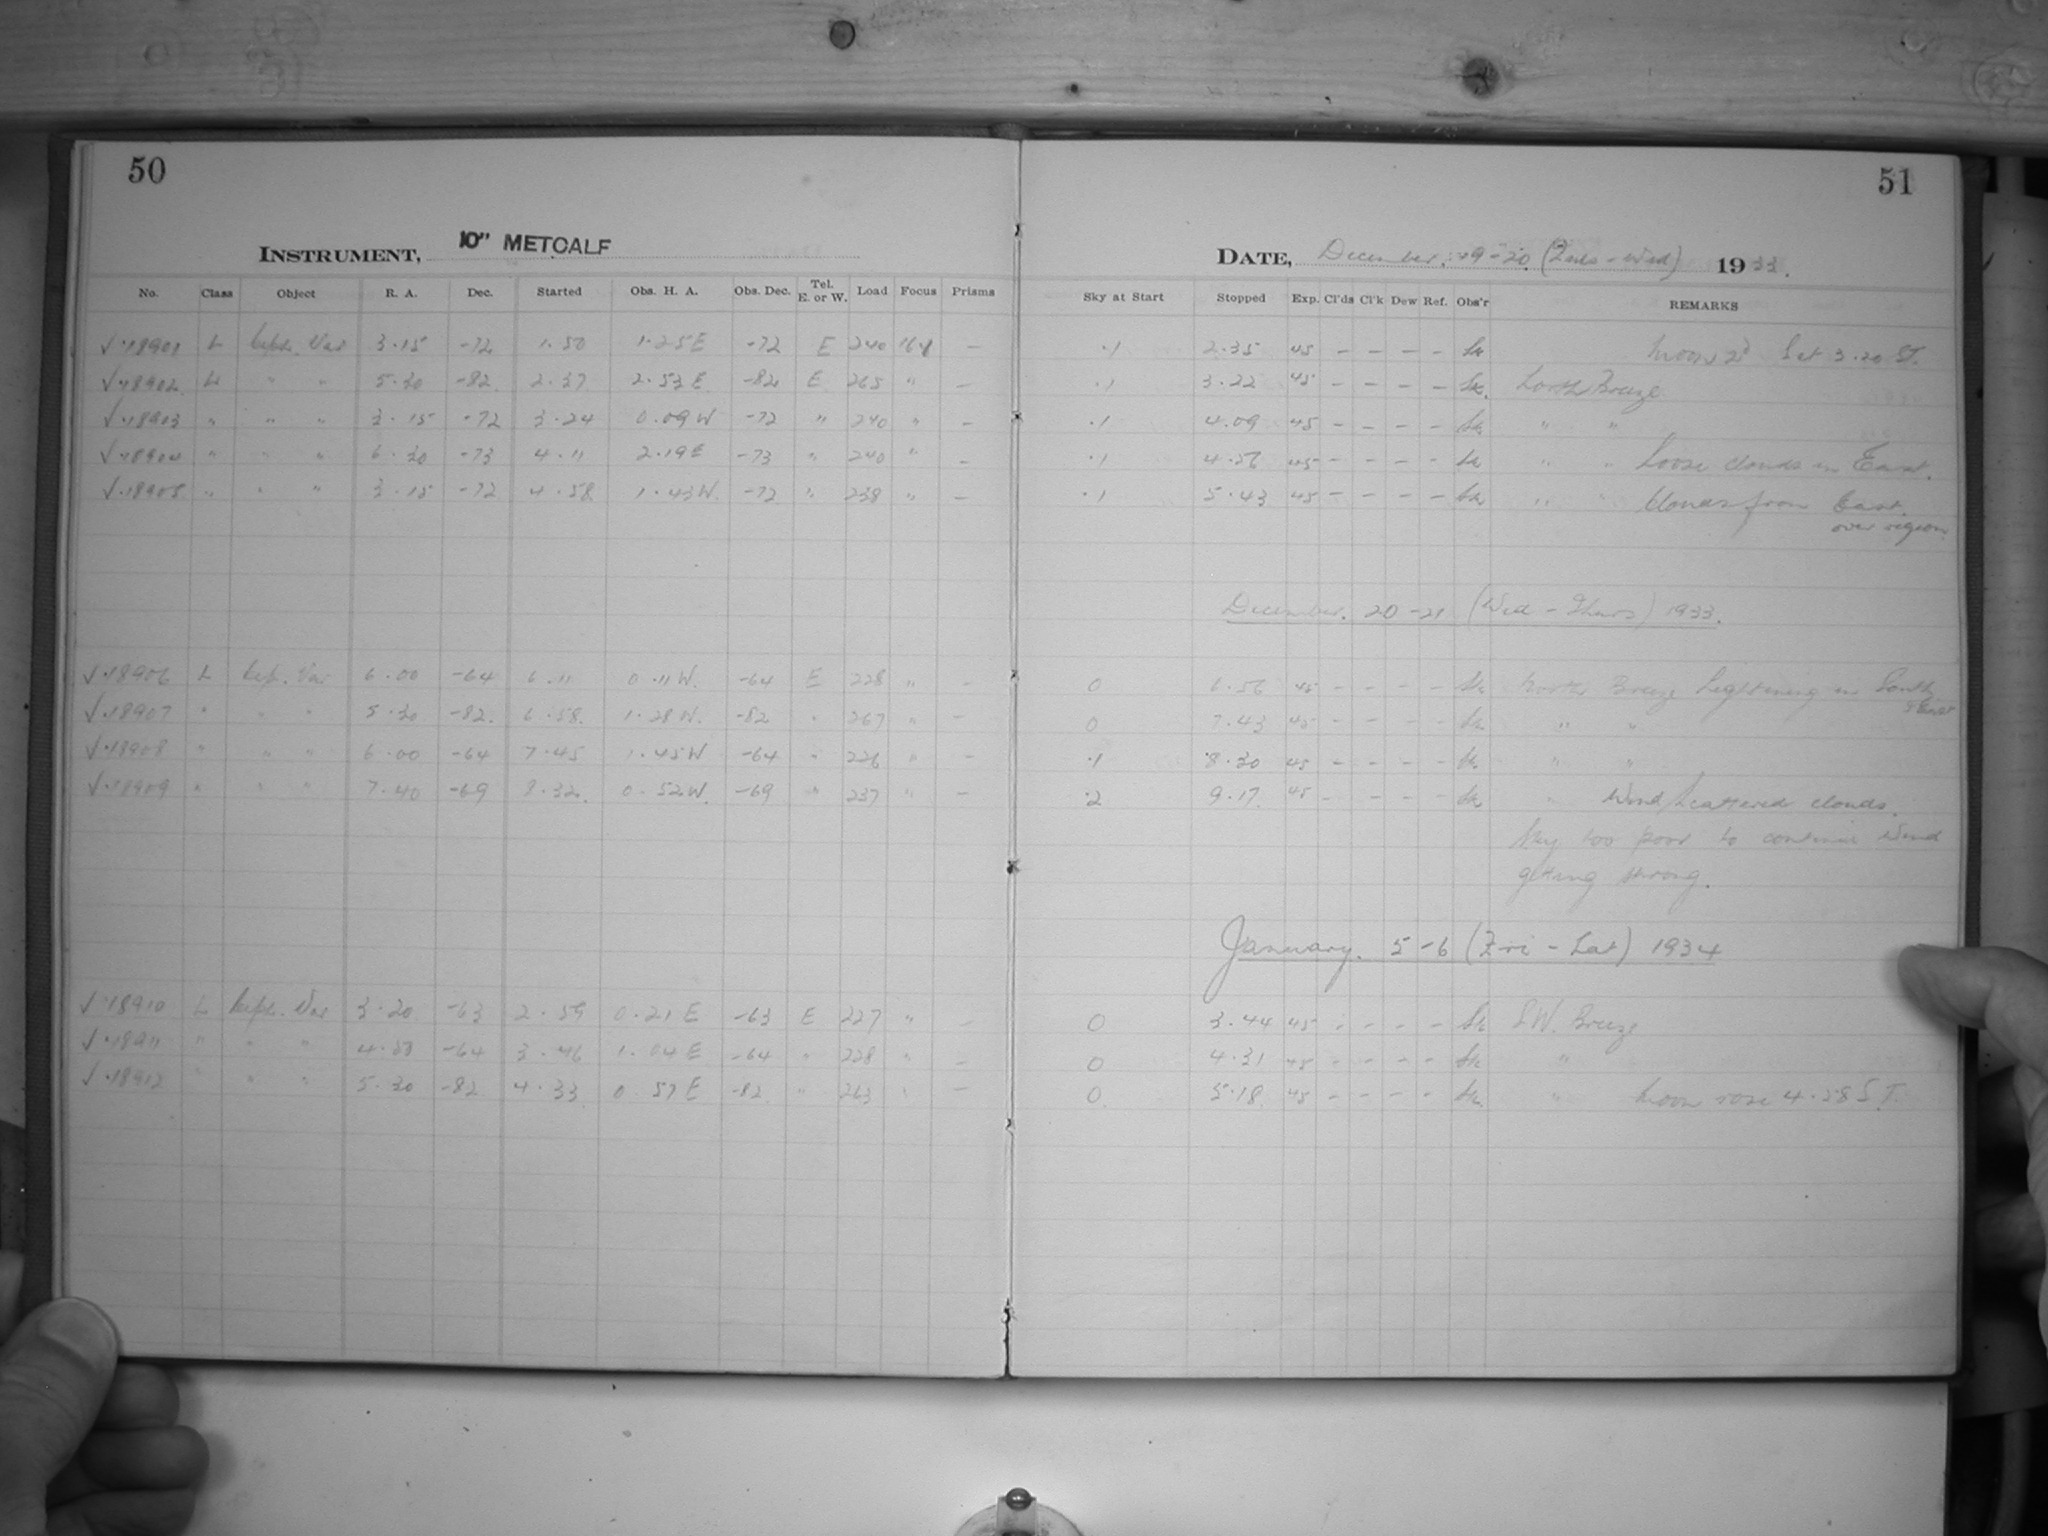 50
INSTRUMENT, 10" METCALF
No. Class Object R. A. Dec. Started Obs. H. A. Obs. Dec. Tel. E. or W. Load Focus Prisms
√ 18901 L Ceph. Var 3.15 -72 1.50 1.25E -72 E 240 —
√ 18902 L " " 5.30 -82 2.37 2.53E -82 E 265 " —
√ 18903 " " " 3.15 -72 3.24 0.09W -72 " 240 " —
√ 18904 " " " 6.30 -73 4.11 2.19E -73 " 240 " —
√ 18905 " " " 3.15 -72 4.58 1.43W. -72 " 238 " —
√ 18906 L Ceph. Var 6.00 -64 6.11 0.11W. -64 E 228 " —
√ 18907 " " " 5.30 -82. 6.58. 1.28W. -82 " 267 " —
√ 18908 " " " 6.00 -64 7.45 1.45W -64 " 226 " —
√ 18909 " " " 7.40 -69 8.32. 0.52W. -69 " 237 " —
√ 18910 L Ceph. Var 3.20 -63 2.59 0.21E -63 E 227 " —
√ 18911 " " " -64 3.46 1.04E -64 " 228 —
√ 18912 " " " 5.30 -82 4.33 0 57E -82. " 263 " —
51
DATE, December. 19-20 (Tues - Wed) 1933.
Sky at Start Stopped Exp. Cl'ds Cl'k Dew Ref. Obs'r REMARKS
.1 2.35 45 - - - - Moon Set 3.20 ST.
.1 3.22 45 - - - - North Breeze
.1 4.09 45 - - - - " "
.1 4.56 45 - - - - " " Loose clouds in East.
.1 5.43 45 - - - - " " Clouds from East.
over region
December. 20-21 (Wed - Thurs) 1933.
0 6.56 45 - - - - North Breeze Lightning in South
0 7.43 45 - - - - " "
.1 8.30 45 - - - - " "
.2 9.17. 45 - - - - " Wind Scattered clouds.
Sky too poor to continue Wind
getting strong.
January. 5-6 (Fri - Sat) 1934
0 3.44 45 - - - - S.W. Breeze
0 4.31 45 - - - - "
0. 5.18. 45 - - - - " Moon rose 4.58 S.T.